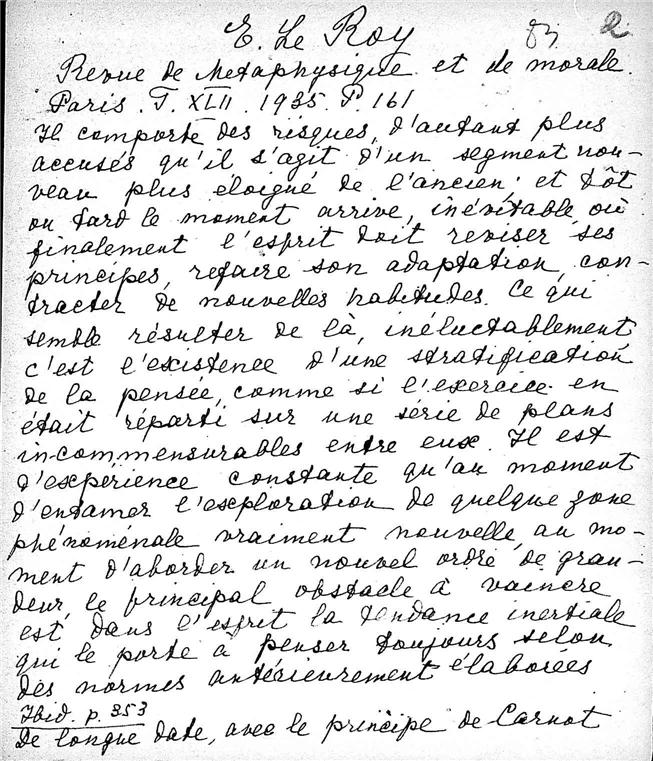 E. Le Roy 83 2
Revue de Metaphysique et de morale.
Paris. T. XLII. 1935. P. 161
Il comporte des risques, d'autant plus
accusés qu'il s'agit d'un segment nou-
veau plus éloigné de l'ancien; et tôt
ou tard le moment arrive, inévitable, où
finalement l'esprit doit reviser ses
principes, refaire son adaptation, con-
tracter de nouvelles habitudes. Ce qui
semble résulter de là, inéluctablement
c'est l'existence d'une stratification
de la pensée, comme si l'exercice en
était réparti sur une série de plans
incommensurables entre eux. Il est
d'expérience constante qu'au moment
d'entamer l'exploration de quelque zone
phénoménale vraiment nouvelle, au mo-
ment d'aborder un nouvel ordre de gran-
deur, le principal obstacle à vaincre
est dans l'esprit la tendance inertiale
qui le porte à penser toujours selon
des normes antérieurement élaborées
Ibid. p. 353
De longue date, avec le principe de Carnot